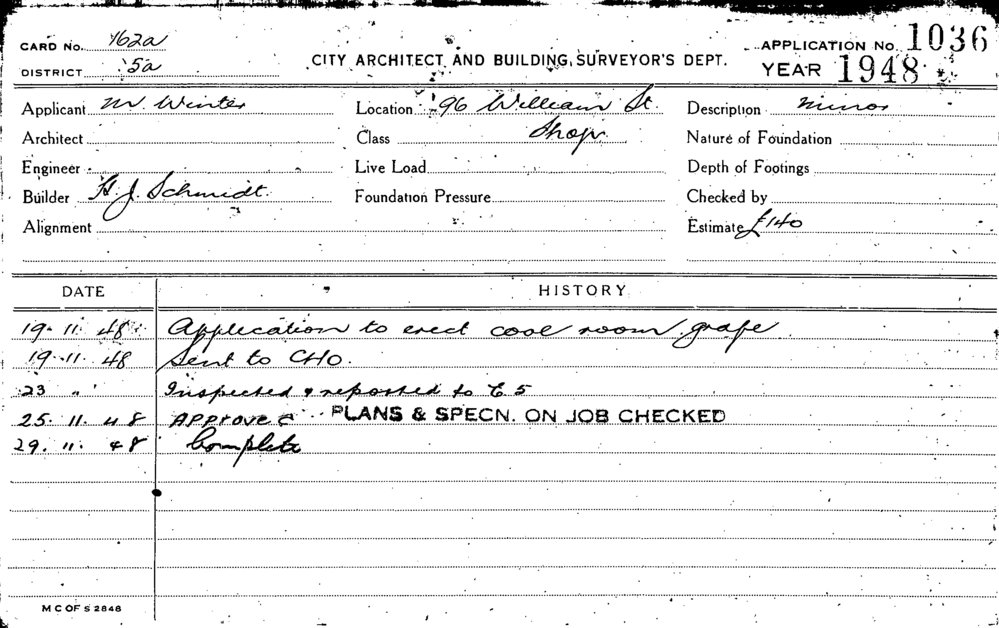 CARD No. 762a
CITY ARCHITECT AND BUILDING SURVEYOR'S DEPT.
APPLICATION No. 1036
DISTRICT 5a
YEAR 1948
Applicant W. Winter Location 96 William St. Description Minor
Architect Class Shop Nature of Foundation
Engineer Live Load Depth of Footings
Builder H. J. Schmidt. Foundation Pressure Checked by
Alignment Estimate £140
DATE HISTORY
19. 11. 48. Application to erect cool room
19. 11. 48 Sent to CHO.
23 " Inspected & reported to
25. 11. 48 Approved PLANS & SPECN. ON JOB CHECKED
29. 11. 48 Complete
M C OF S 2848